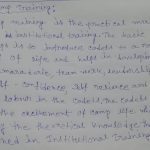 Camp Training:
training is the practical
institutional training. The basic
is to introduce cadets to a
of life and helps in develop
comradeship, team work, leadership
self confidence, self reliance and
labour in the cadets. The cadets
the excitement of camp life
the theoretical knowledge
in Institutional Training